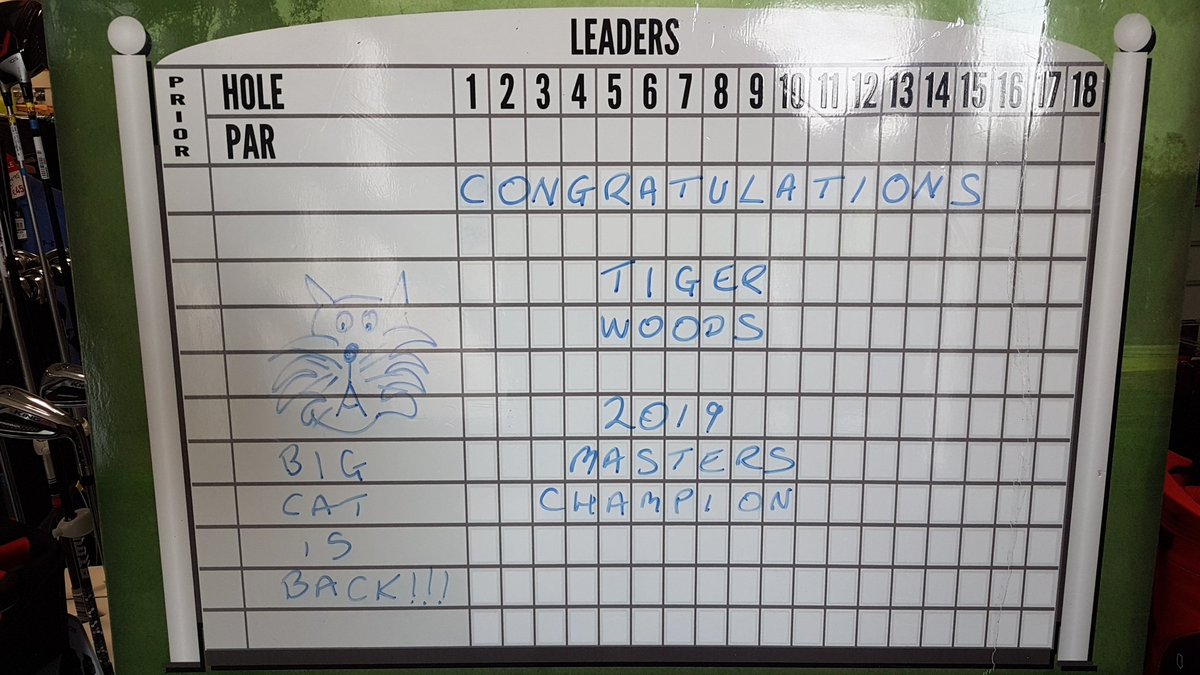 LEADERS
PRIOR
HOLE 1 2 3 4 5 6 7 8 9 10 11 12 13 14 15 16 17 18
PAR
CONGRATULATIONS
TIGER
WOODS
2019
MASTERS
CHAMPION
BIG
CAT
IS
BACK!!!